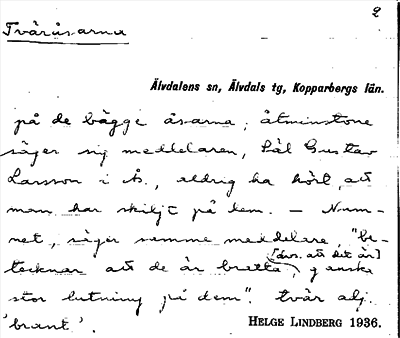 2
Tväråsarna
Älvdalens sn, Älvdals tg, Kopparbergs län.
på de bägge åsarna; åtminstone
säger sig meddelaren, Pål Gustav
Larsson i Å., aldrig ha hört, att
man har skiljt på dem. — Nam-
net, säger samme meddelare, "be-
[dvs. att det är]
tecknar att de är bratta, ganska
stor lutning på dem". tvär adj.
'brant'.
HELGE LINDBERG 1936.